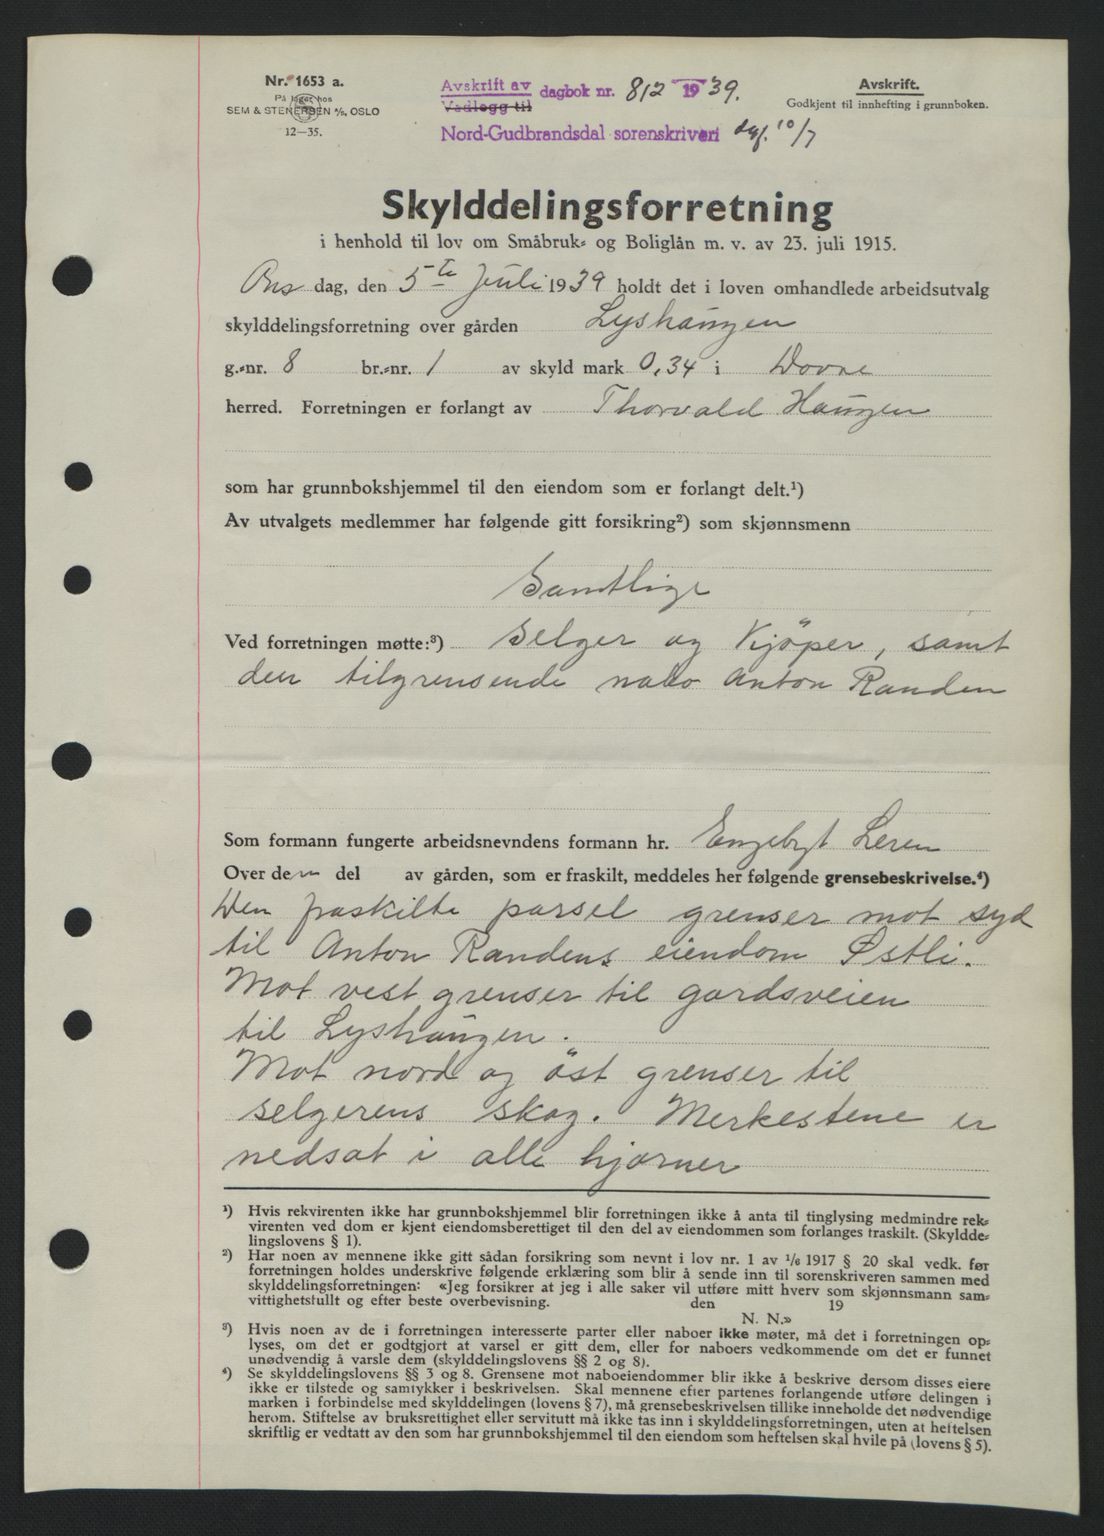 Nr. 1653 a.
På lager hos
SEM & STENERSEN A/S, OSLO
12—35.
Avskrift av
Vedlegg til
dagbok nr. 812 1939.
Nord-Gudbrandsdal sorenskriveri dgf. 10/7
Avskrift.
Godkjent til innhefting i grunnboken.
Skylddelingsforretning
i henhold til lov om Småbruk- og Boliglån m. v. av 23. juli 1915.
Ons dag, den 5te Juli 1939 holdt det i loven omhandlede arbeidsutvalg
skylddelingsforretning over gården Lyshaugen
g.-nr. 8 br.-nr. 1 av skyld mark 0,34 i Dovre
herred. Forretningen er forlangt av Thorvald Haugen
som har grunnbokshjemmel til den eiendom som er forlangt delt.¹)
Av utvalgets medlemmer har følgende gitt forsikring²) som skjønnsmenn
Samtlige
Ved forretningen møtte:³) Selger og Kjöper, samt
den tilgrensende nabo Anton Randen
Som formann fungerte arbeidsnevndens formann hr. Engebrgt Leren
Over den del av gården, som er fraskilt, meddeles her følgende grensebeskrivelse.⁴)
Den fraskilte parsel grenser mot syd
til Anton Randens eiendom Østli.
Mot vest grenser til gardsveien
til Lyshaugen.
Mot nord og öst grenser til
selgerens skog. Merkestene er
nedsat i alle hjørner
¹) Hvis rekvirenten ikke har grunnbokshjemmel blir forretningen ikke å anta til tinglysing medmindre rek-
virenten ved dom er kjent eiendomsberettiget til den del av eiendommen som forlanges fraskilt. (Skyldde-
lingslovens § 1).
²) Har noen av mennene ikke gitt sådan forsikring som nevnt i lov nr. 1 av 1/6 1917 § 20 skal vedk. før
forretningen holdes underskrive følgende erklæring som blir å sende inn til sorenskriveren sammen med
skylddelingsforretningen: «Jeg forsikrer at jeg i alle saker vil utføre mitt hverv som skjønnsmann sam-
vittighetsfullt og efter beste overbevisning. den 19
N. N.»
³) Hvis noen av de i forretningen interesserte parter eller naboer ikke møter, må det i forretningen op-
lyses, om det er godtgjort at varsel er gitt dem, eller for naboers vedkommende om det er funnet
unødvendig å varsle dem (skylddelingslovens §§ 2 og 8).
⁴) Se skylddelingslovens §§ 3 og 8. Grensene mot naboeiendommer blir ikke å beskrive dersom disses eiere
ikke er tilstede og samtykker i beskrivelsen. Skal mennene efter partenes forlangende utføre delingen i
marken i forbindelse med skylddelingen (lovens § 7), må grensebeskrivelsen tillike inneholde det nødvendige
herom. Stiftelse av bruksrettighet eller servitutt må ikke tas inn i skylddelingsforretningen, uten at heftelsen
skriftlig er vedtatt av den som har grunnbokshjemmel til den eiendom som heftelsen skal hvile på (lovens § 5).